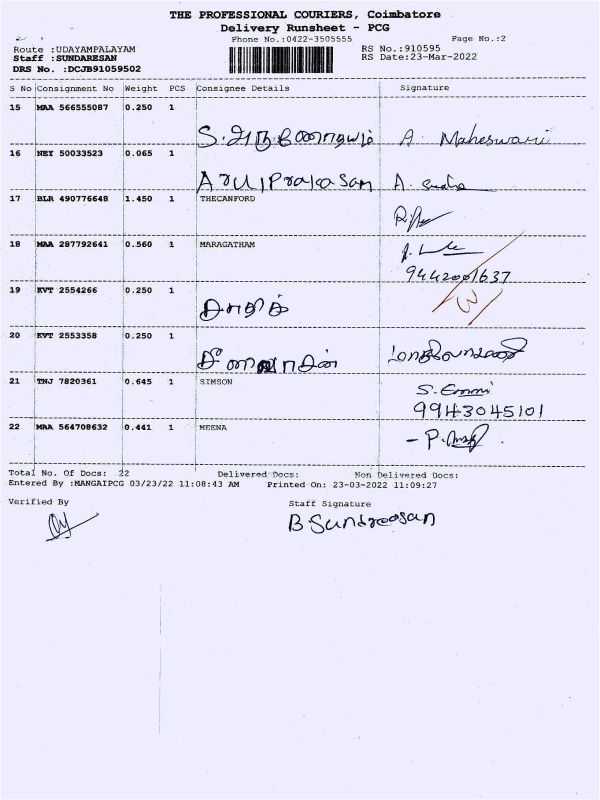 THE PROFESSIONAL COURIERS, Coimbatore
Delivery Runsheet - PCG
Phone No.:0422-3505555 Page No.:2
Route :UDAYAMPALAYAM RS No.:910595
Staff :SUNDARESAN RS Date:23-Mar-2022
DRS No. :DCJB91059502
S No Consignment No Weight PCS Consignee Details Signature
15 MAA 566555087 0.250 1
S. A. Maheswari
16 NEY 50033523 0.065 1
Arulprakasam A.
17 BLR 490776648 1.450 1 THECANFORD
18 MAA 287792641 0.560 1 MARAGATHAM
9442001637
19 KVT 2554266 0.250 1
20 KVT 2553358 0.250 1
21 TNJ 7820361 0.645 1 SIMSON S. Emmi
9943045101
22 MAA 564708632 0.441 1 MEENA
Total No. Of Docs: 22 Delivered Docs: Non Delivered Docs:
Entered By :MANGAIPCG 03/23/22 11:08:43 AM Printed On: 23-03-2022 11:09:27
Verified By Staff Signature
B Sundreosan